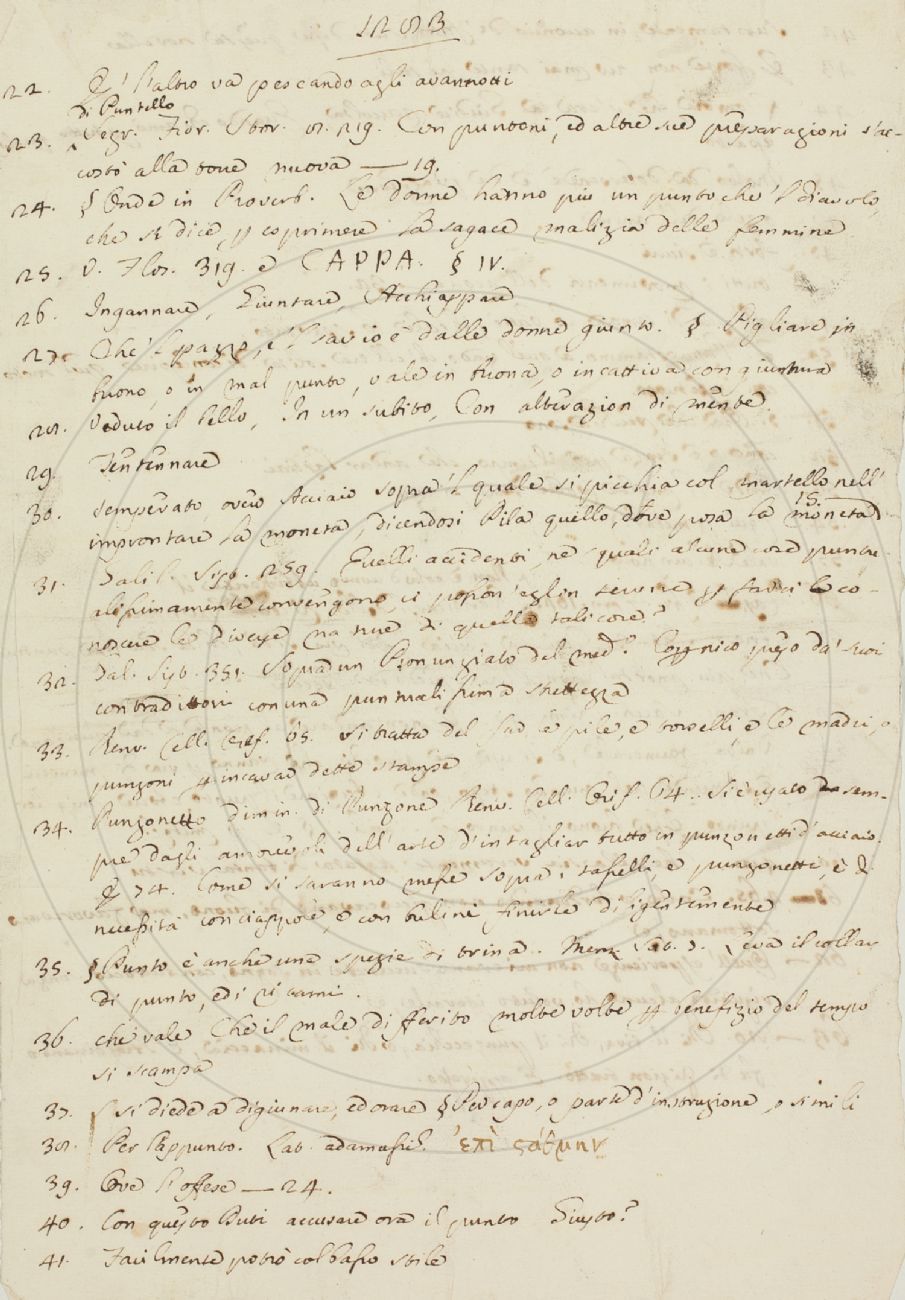 1283
22. E l'altro va pescando agli avannotti
di Puntello
23. Segr. Fior. Stor. 8. 219. Con puntoni, ed altre sue preparazioni s'ac-
costò alla torre nuova — 19.
24. § Onde in Proverb. Le donne hanno più un punto che 'l diavolo,
che si dice, p esprimere la sagace malizia delle femmine.
25. V. Flos. 319. e CAPPA. § IV.
26. Ingannare, Giuntare, Acchiappare
27. Che 'l pazzo, e 'l savio è dalle donne giunto. § Pigliare in
buono, o in mal punto, vale in buona, o in cattiva congiuntura
28. Veduto il bello, In un subito, Con alterazion di mente.
29. Tentennare
30. temperato, ovvero Acciaio sopra 'l quale si picchia col martello nell'
improntare la moneta, dicendosi Pila quello, dove posa la moneta
15.
31. Galil. Sist. 259. Quelli accidenti, ne' quali alcune cose puntu-
alissimamente convengono, ci posson' eglin servire p farci co-
noscere le diverse nature di quelle tali cose?
32. Gal. Sist. 351. Sopra un Pronunziato del med.° preso da' suoi
contradittori con una puntualissima strettezza
33. Benv. Cell. Oref. 63. Si tratta del far le pile, e torselli, e le madri, e
punzoni p incavar dette stampe
34. Punzonetto dimin. di Punzone Benv. Cell. Orif. 64. Si è usato sem-
pre dagli amorevoli dell'arte d'intagliar tutto in punzonetti d'acciaio.
E 74. Come si saranno messe sopra i tasselli, e punzonetti, è di
necessità con ciappole, e con bulini finirle diligentemente
35. § Punto è anche una spezie di trina. Menz. Sat. 3. Leva il collar
di punto, ed i ricami.
36. che vale Che il male differito molte volte p benefizio del tempo
si scampa
37. si diede a digiunare, ed orare § Per capo, o parte d'instruzione, o simili
38. Per l'appunto. Lat. adamussi. ἐπὶ ςάθμην
39. Ove l'offese — 24.
40. Con questo Buti accusare ora il punto Giusto?
41. Facilmente potrò col basso stile